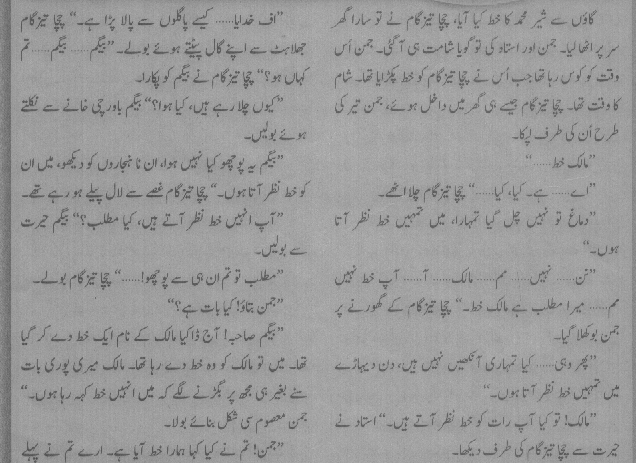 گاؤں سے شیر محمد کا خط کیا آیا، چچا تیز گام نے تو سارا گھر
سر پر اٹھا لیا۔ جمن اور استاد کی تو گویا شامت ہی آ گئی۔ جمن اُس
وقت کو کوس رہا تھا جب اُس نے چچا تیز گام کو خط پکڑایا تھا۔ شام
کا وقت تھا۔ چچا تیز گام جیسے ہی گھر میں داخل ہوئے، جمن تیر کی
طرح اُن کی طرف لپکا۔
”مالک خط......“
”اے...... ہے۔ کیا، کیا......“ چچا تیز گام چلا اٹھے۔
”دماغ تو نہیں چل گیا تمہارا، میں تمہیں خط نظر آتا
ہوں۔“
”نن...... نہیں...... مم...... مالک...... آ...... آپ خط نہیں
مم...... میرا مطلب ہے مالک خط۔“ چچا تیز گام کے گھورنے پر
جمن بوکھلا گیا۔
”پھر وہی...... کیا تمہاری آنکھیں نہیں ہیں، دن دیہاڑے
میں تمہیں خط نظر آتا ہوں۔“
”مالک! تو کیا آپ رات کو خط نظر آتے ہیں۔“ استاد نے
حیرت سے چچا تیز گام کی طرف دیکھا۔
”اف خدایا...... کیسے پاگلوں سے پالا پڑا ہے۔“ چچا تیز گام
جھلاہٹ سے اپنے گال پیٹتے ہوئے بولے۔ ”بیگم...... بیگم...... تم
کہاں ہو؟“ چچا تیز گام نے بیگم کو پکارا۔
”کیوں چلا رہے ہیں، کیا ہوا؟“ بیگم باورچی خانے سے نکلتے
ہوئے بولیں۔
”بیگم یہ پوچھو کیا نہیں ہوا، ان ناہنجاروں کو دیکھو، میں ان
کو خط نظر آتا ہوں۔“ چچا تیز گام غصے سے لال پیلے ہو رہے تھے۔
”آپ انہیں خط نظر آتے ہیں، کیا مطلب؟“ بیگم حیرت
سے بولیں۔
”مطلب تو تم ان ہی سے پوچھو!......“ چچا تیز گام بولے۔
”جمن بتاؤ! کیا بات ہے؟“
”بیگم صاحبہ! آج ڈاکیا مالک کے نام ایک خط دے کر گیا
تھا۔ میں تو مالک کو وہ خط دے رہا تھا۔ مالک میری پوری بات
سنے بغیر ہی مجھ پر بگڑنے لگے کہ میں انہیں خط کہہ رہا ہوں۔“
جمن معصوم سی شکل بنائے بولا۔
”جمن! تم نے کیا کہا ہمارا خط آیا ہے۔ ارے تم نے پہلے